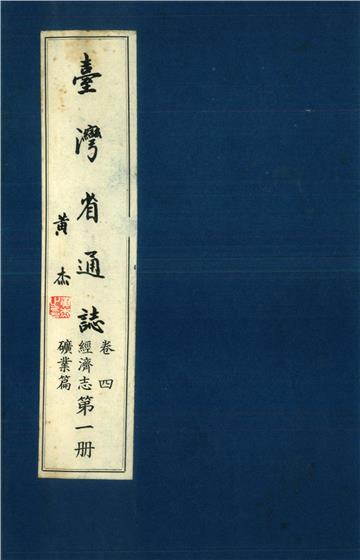 臺灣省通誌
卷四
經濟志
礦業篇
第一册
黃杰